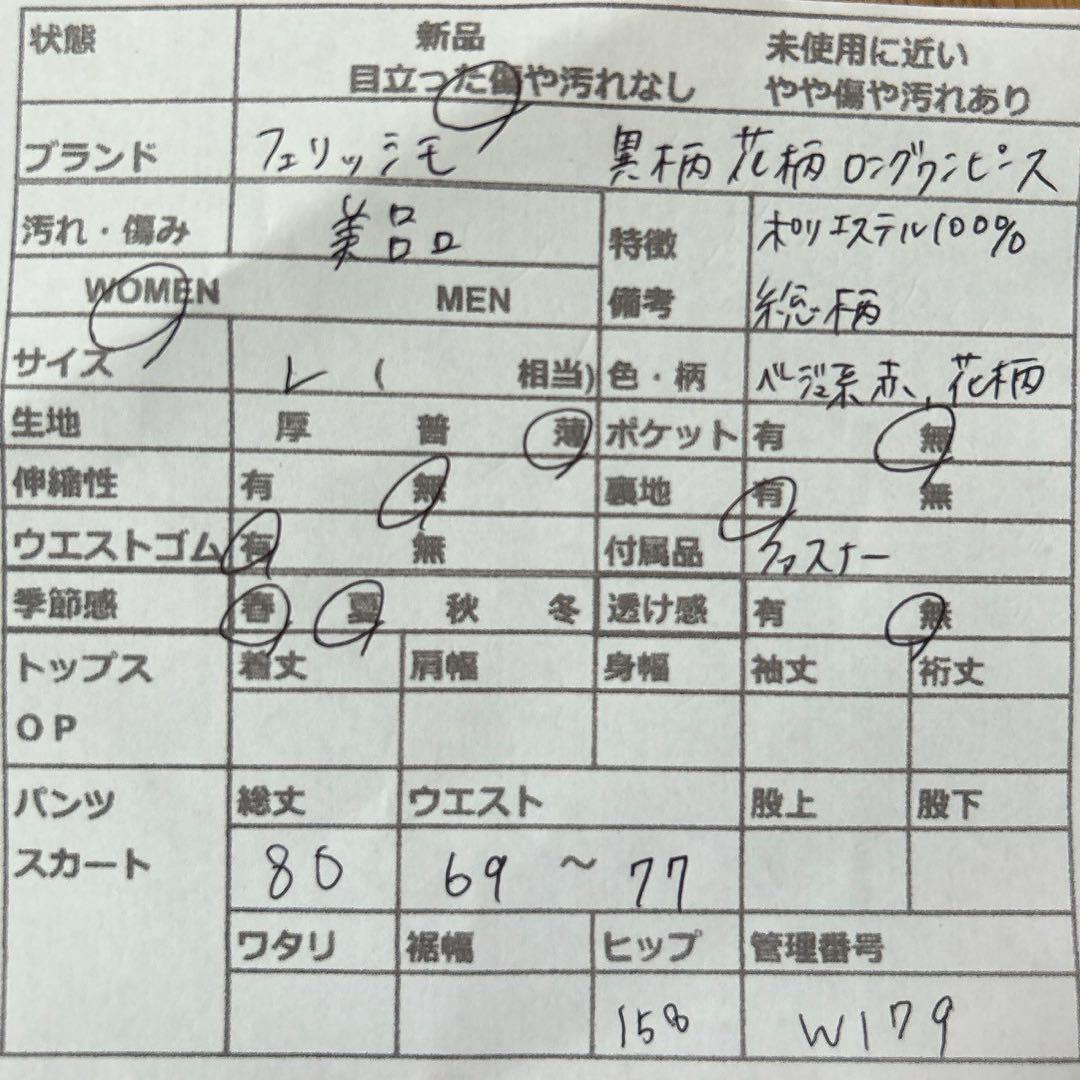 状態 新品 未使用に近い
目立った傷や汚れなし やや傷や汚れあり
ブランド フェリッシモ 異柄花柄ロングワンピース
汚れ・傷み 美品 特徴 ポリエステル100%
WOMEN MEN 備考 総柄
サイズ L ( 相当) 色・柄 ベージュ系赤、花柄
生地 厚 普 薄 ポケット 有 無
伸縮性 有 無 裏地 有 無
ウエストゴム 有 無 付属品 ファスナー
季節感 春 夏 秋 冬 透け感 有 無
トップス 着丈 肩幅 身幅 袖丈 裄丈
OP
パンツ 総丈 ウエスト 股上 股下
スカート 80 69 ~ 77
ワタリ 裾幅 ヒップ 管理番号
158 W179